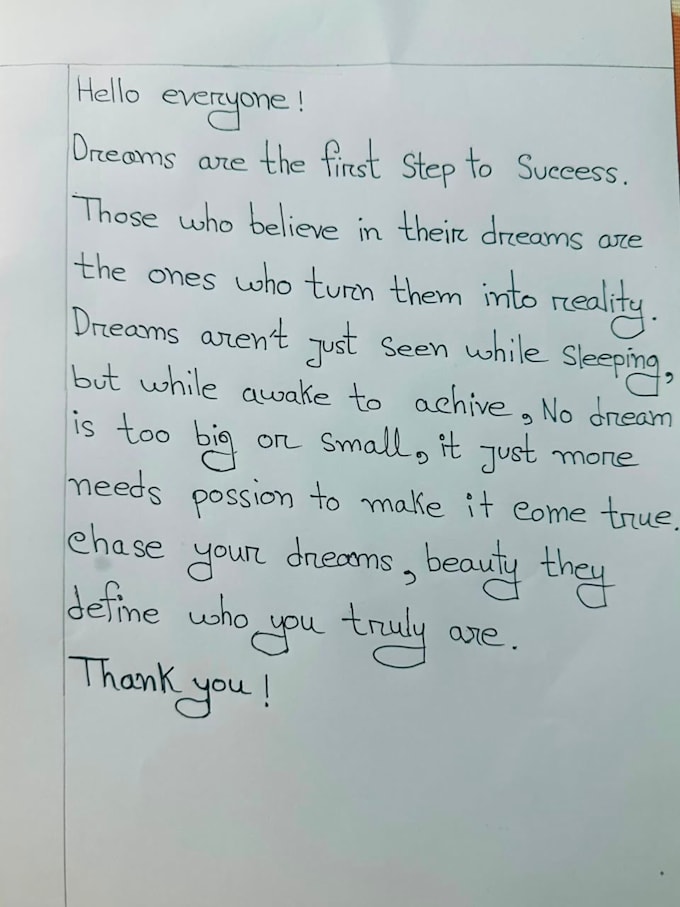 Hello everyone!
Dreams are the first Step to Success.
Those who believe in their dreams are
the ones who turn them into reality.
Dreams aren't just Seen while Sleeping,
but while awake to achive, No dream
is too big or Small, it just more
needs possion to make it come true.
Chase your dreams, beauty they
define who you truly are.
Thank you!